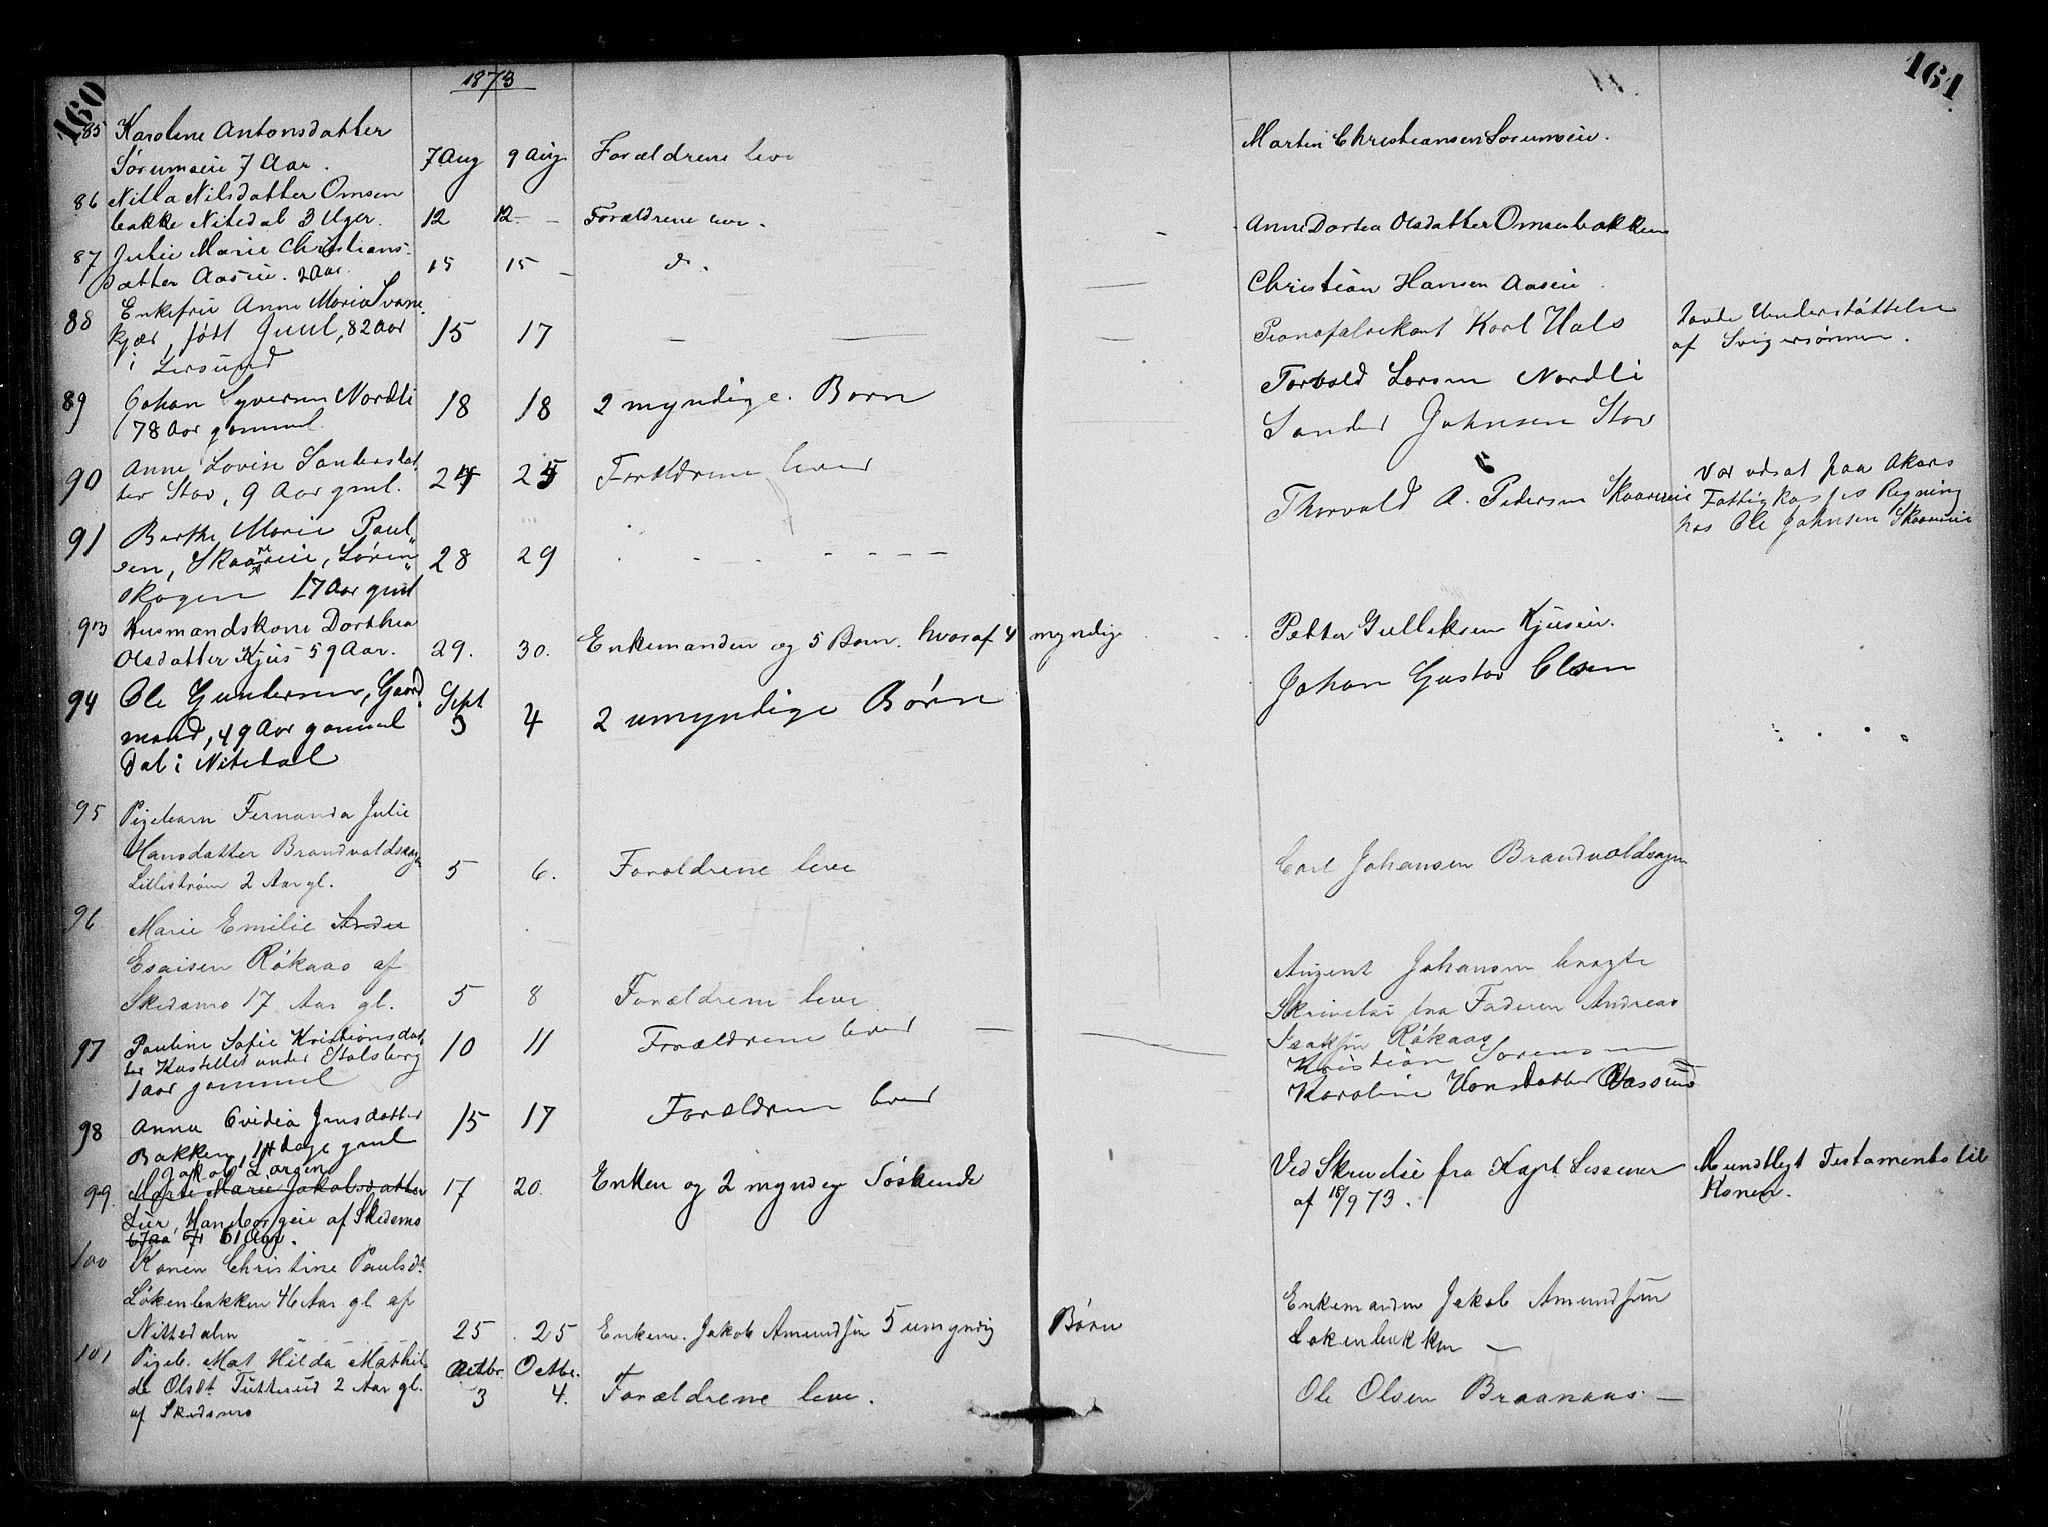 160
1873
161
85 Karoline Antonsdatter
Sørumseie 7 Aar. 7 Aug 9 Aug Forældrene leve Martin Christiansen Sørumseie.
86 Nilla Nilsdatter Omsen
bakke Nitedal 3 Uger. 12 12 - Forældrene leve. Anne Dortea Olsdatter Omsenbakken
87 Julie Marie Christians-
datter Aaseie. 2 Aar. 15 15 - d. Christian Hansen Aaseie
88 Enkefru Anne Maria Svane
kjær, født Juul, 82 Aar
i Lersund 15 17 - - Pianofabrikant Karl Hals
havde Understøttelse
af Svigersønnen.
89 Johan Syversen Nordli
78 Aar gammel. 18 18 2 myndige. Børn Torvald Larsen Nordli
90 Anne Lovise Sandersdat
ter Stav, 9 Aar gml. 24 25 Forældrene lever Sander Johnsen Stav
91 Berthe Marie Paul„
sen, Skaareie, Lören„
skogen 17 Aar gml 28 29 . . - - - - Thorvald A. Pedersen Skaareneie
Var udsat paa Akers
Fattigkasses Regning
hos Ole Johnsen Skaareie
93 Husmandskone Dorthea
Olsdatter Kjus 59 Aar. 29. 30. Enkemanden og 5 Børn. hvoraf 4 myndige Petter Gulliksen Kjuseie.
94 Ole Gundersen, Gaard
mand, 49 Aar gammel
Dal i Nitedal Sept 3 4 2 umyndige Børn Johan Gustav Olsen
95 Pigebarn Fernanda Julie
Hansdatter Brandvoldsagen
Lillestrøm 2 Aar gl. 5 6. Forældrene leve Carl Johansen Brandvoldsagen
96 Marie Emilie Andre
Esaisen Røkaas af
Skedsmo 17 Aar gl. 5 8 Forældrene leve
Johansen bragte
Skrivelse fra Faderen Andreas
Isaksen Røkaas
97 Pauline Sofie Kristiansdat„
ter Kastellet under Stalsberg
1 Aar gammel 10 11 Forældrene lever - Kristian Sørensen
98 Anna Ovidia Jensdatter
Bakken, 14 dage gml 15 17 Forældrene lever Karoline Hansdatter Aassund
Jakob Larsen
99. Marte Marie Jakobsdatter
Lier, af Skedsmo
61 Aar. 17 20. Enken og 2 myndige Søskende Ved Skrivelse fra Kapt. Lessener
af 18/9 73.
Mundtligt Testamente til
Konen.
100 Konen Christine Paulsdt
Løkenbakken 46 Aar gl. af
Nittedalen 25 25 Enkem. Jakob Amundsen 5 umyndig Børn Enkemanden Jakob Amundsen
Løkenbakken -
101 Pigeb. Mat Hilda Mathil„
de Olsdt Tutterud 2 Aar gl.
af Skedsmo Octbr. 3 Octbr. 4. Forældrene leve. Ole Olsen Braanaas -